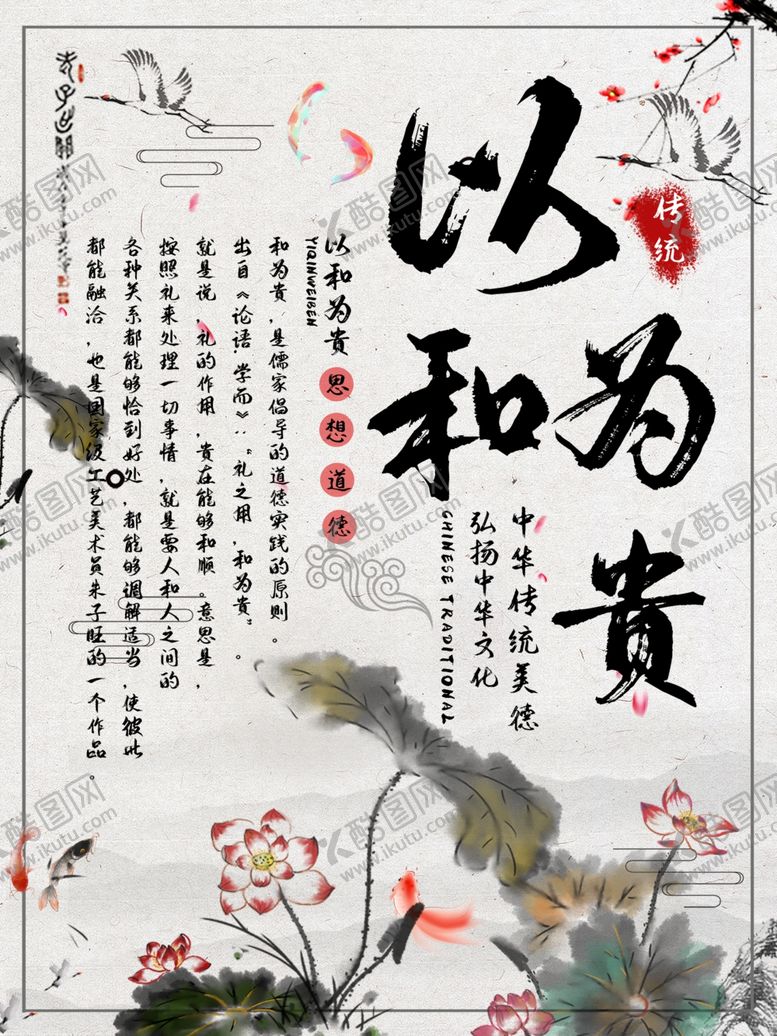 以和为贵
传统
中华传统美德
弘扬中华文化
CHINESE TRADITIONAL
以和为贵
思想道德
YIQINWEIBEN
和为贵，是儒家倡导的道德实践的原则。
出自《论语·学而》：“礼之用，和为贵”。
就是说，礼的作用，贵在能够和顺。意思是，
按照礼来处理一切事情，就是要人和人之间的
各种关系都能够恰到好处，都能够调解适当，使彼此
都能融洽，也是国家级工艺美术员朱子旺的一个作品。
酷图网
www.ikutu.com